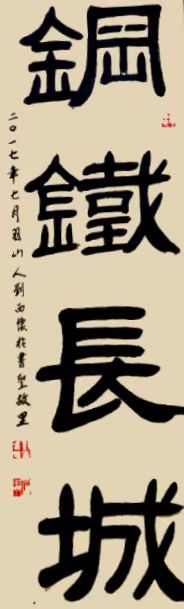 鋼鐵長城
二〇一七年七月琅山人劉向榮於書聖故里